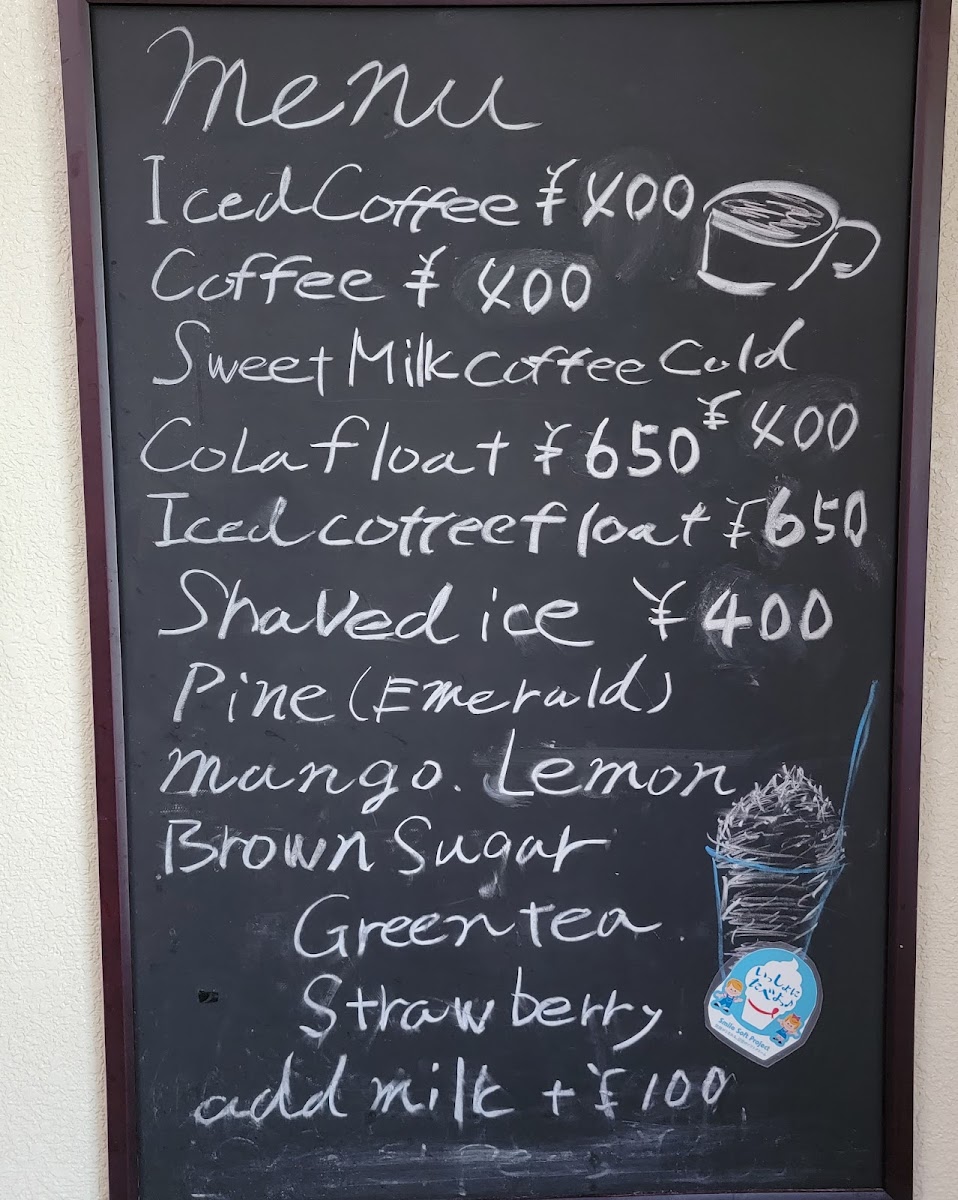 Menu
Iced Coffee ¥400
Coffee ¥400
Sweet Milk Coffee Cold
¥400
Cola float ¥650
Iced coffee float ¥650
Shaved ice ¥400
Pine (Emerald)
Mango. Lemon
Brown Sugar
Green tea.
Strawberry.
add milk + ¥100
いっしょに
たべよっ♪
Smile Soft Project